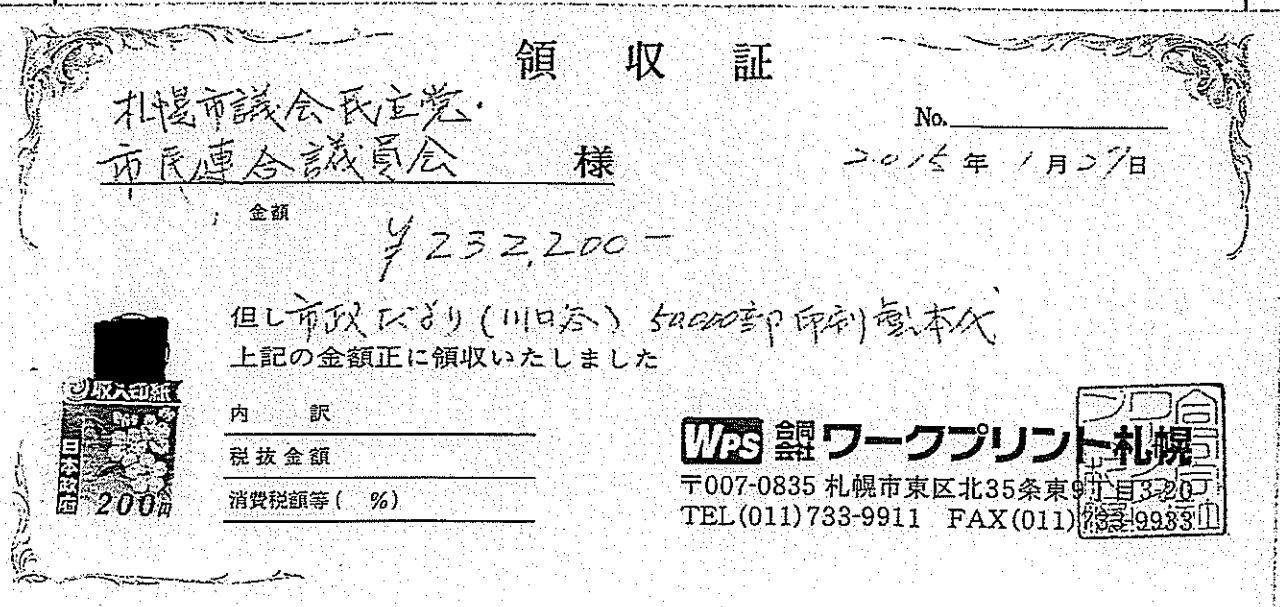 領 収 証
札幌市議会民主党・
市民連合議員会 様
No.
2015年 1月27日
金額
¥232,200-
但し市政だより(川口谷) 50,000部印刷製本代
上記の金額正に領収いたしました
収入印紙
日本政府
200円
内 訳
税抜金額
消費税額等( %)
WPS 合同会社 ワークプリント札幌
〒007-0835 札幌市東区北35条東9丁目3-20
TEL(011)733-9911 FAX(011)733-9933